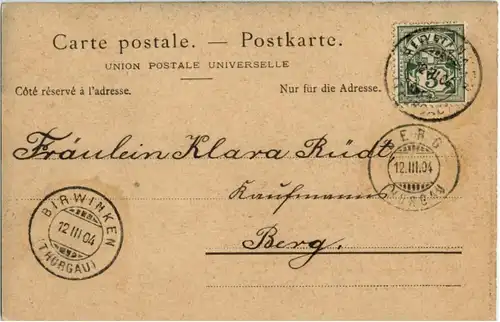 Carte postale. — Postkarte.
UNION POSTALE UNIVERSELLE
Côté réservé à l'adresse. Nur für die Adresse.
Fräulein Klara Rüdt
Kaufmanns
Berg.
BERG
12.III.04
(THURGAU)
BIRWINKEN
12 III 04
(THURGAU)